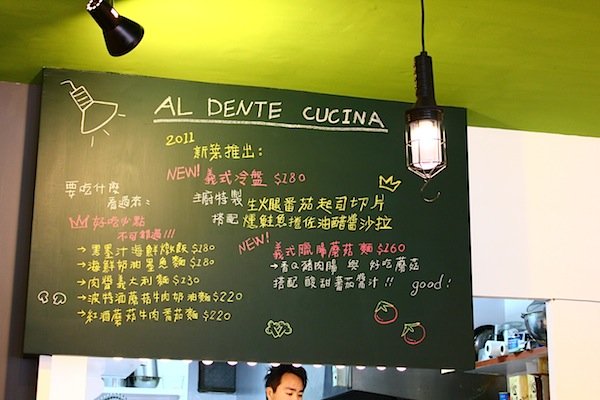 AL DENTE CUCINA
2011
新菜推出：
NEW! 義式冷盤 $180
主廚特製 生火腿番茄起司切片
搭配 燻鮭魚捲佐油醋醬沙拉
NEW! 義式臘腸蘑菇麵 $160
→香Q豬肉腸 與 好吃蘑菇
搭配 酸甜蕃茄醬汁!! good!
要吃什麼
看過來：
好吃必點
不可錯過!!!
→黑墨汁海鮮燉飯$180
→海鮮奶油墨魚麵$180
→肉醬義大利麵$130
→波特酒蘑菇牛肉奶油麵$220
→紅酒蘑菇牛肉蕃茄麵$220